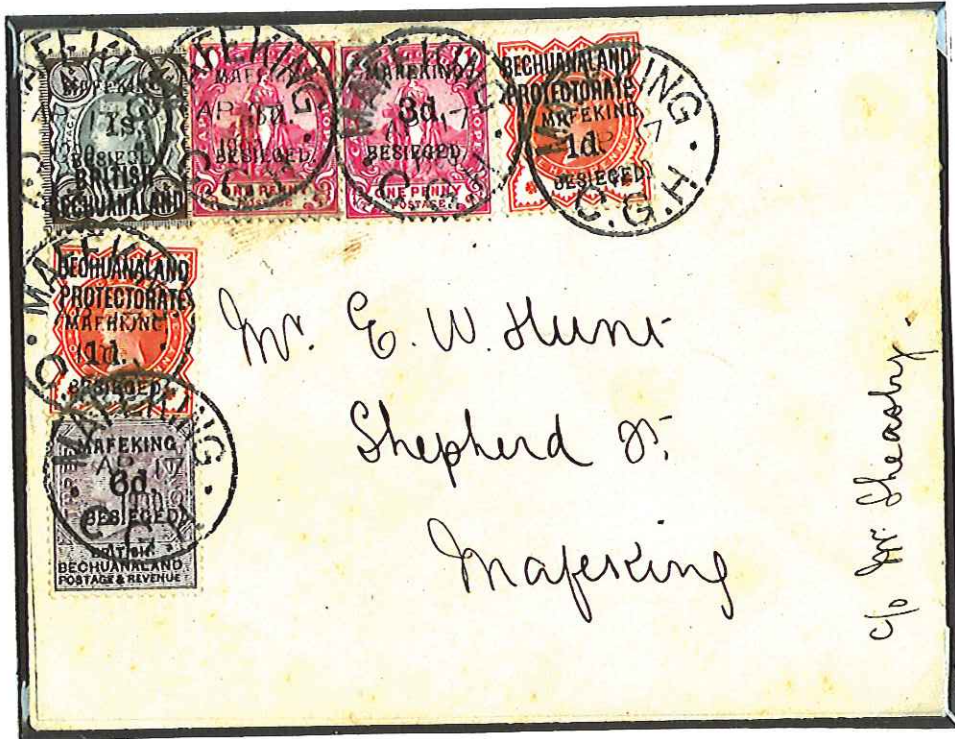 MAFEKING
1s.
BESIEGED.
BRITISH
BECHUANALAND
MAFEKING
3d.
BESIEGED.
ONE PENNY
POSTAGE
MAFEKING
3d.
BESIEGED.
ONE PENNY
POSTAGE
BECHUANALAND
PROTECTORATE
MAFEKING
1d.
BESIEGED.
MAFEKING
AP 7
C.G.H.
BECHUANALAND
PROTECTORATE
MAFEKING
1d.
BESIEGED.
MAFEKING
6d.
BESIEGED.
BRITISH
BECHUANALAND
POSTAGE & REVENUE
Mr. E. W. Hunt
Shepherd St.
Mafeking
c/o Mr Sheasby.